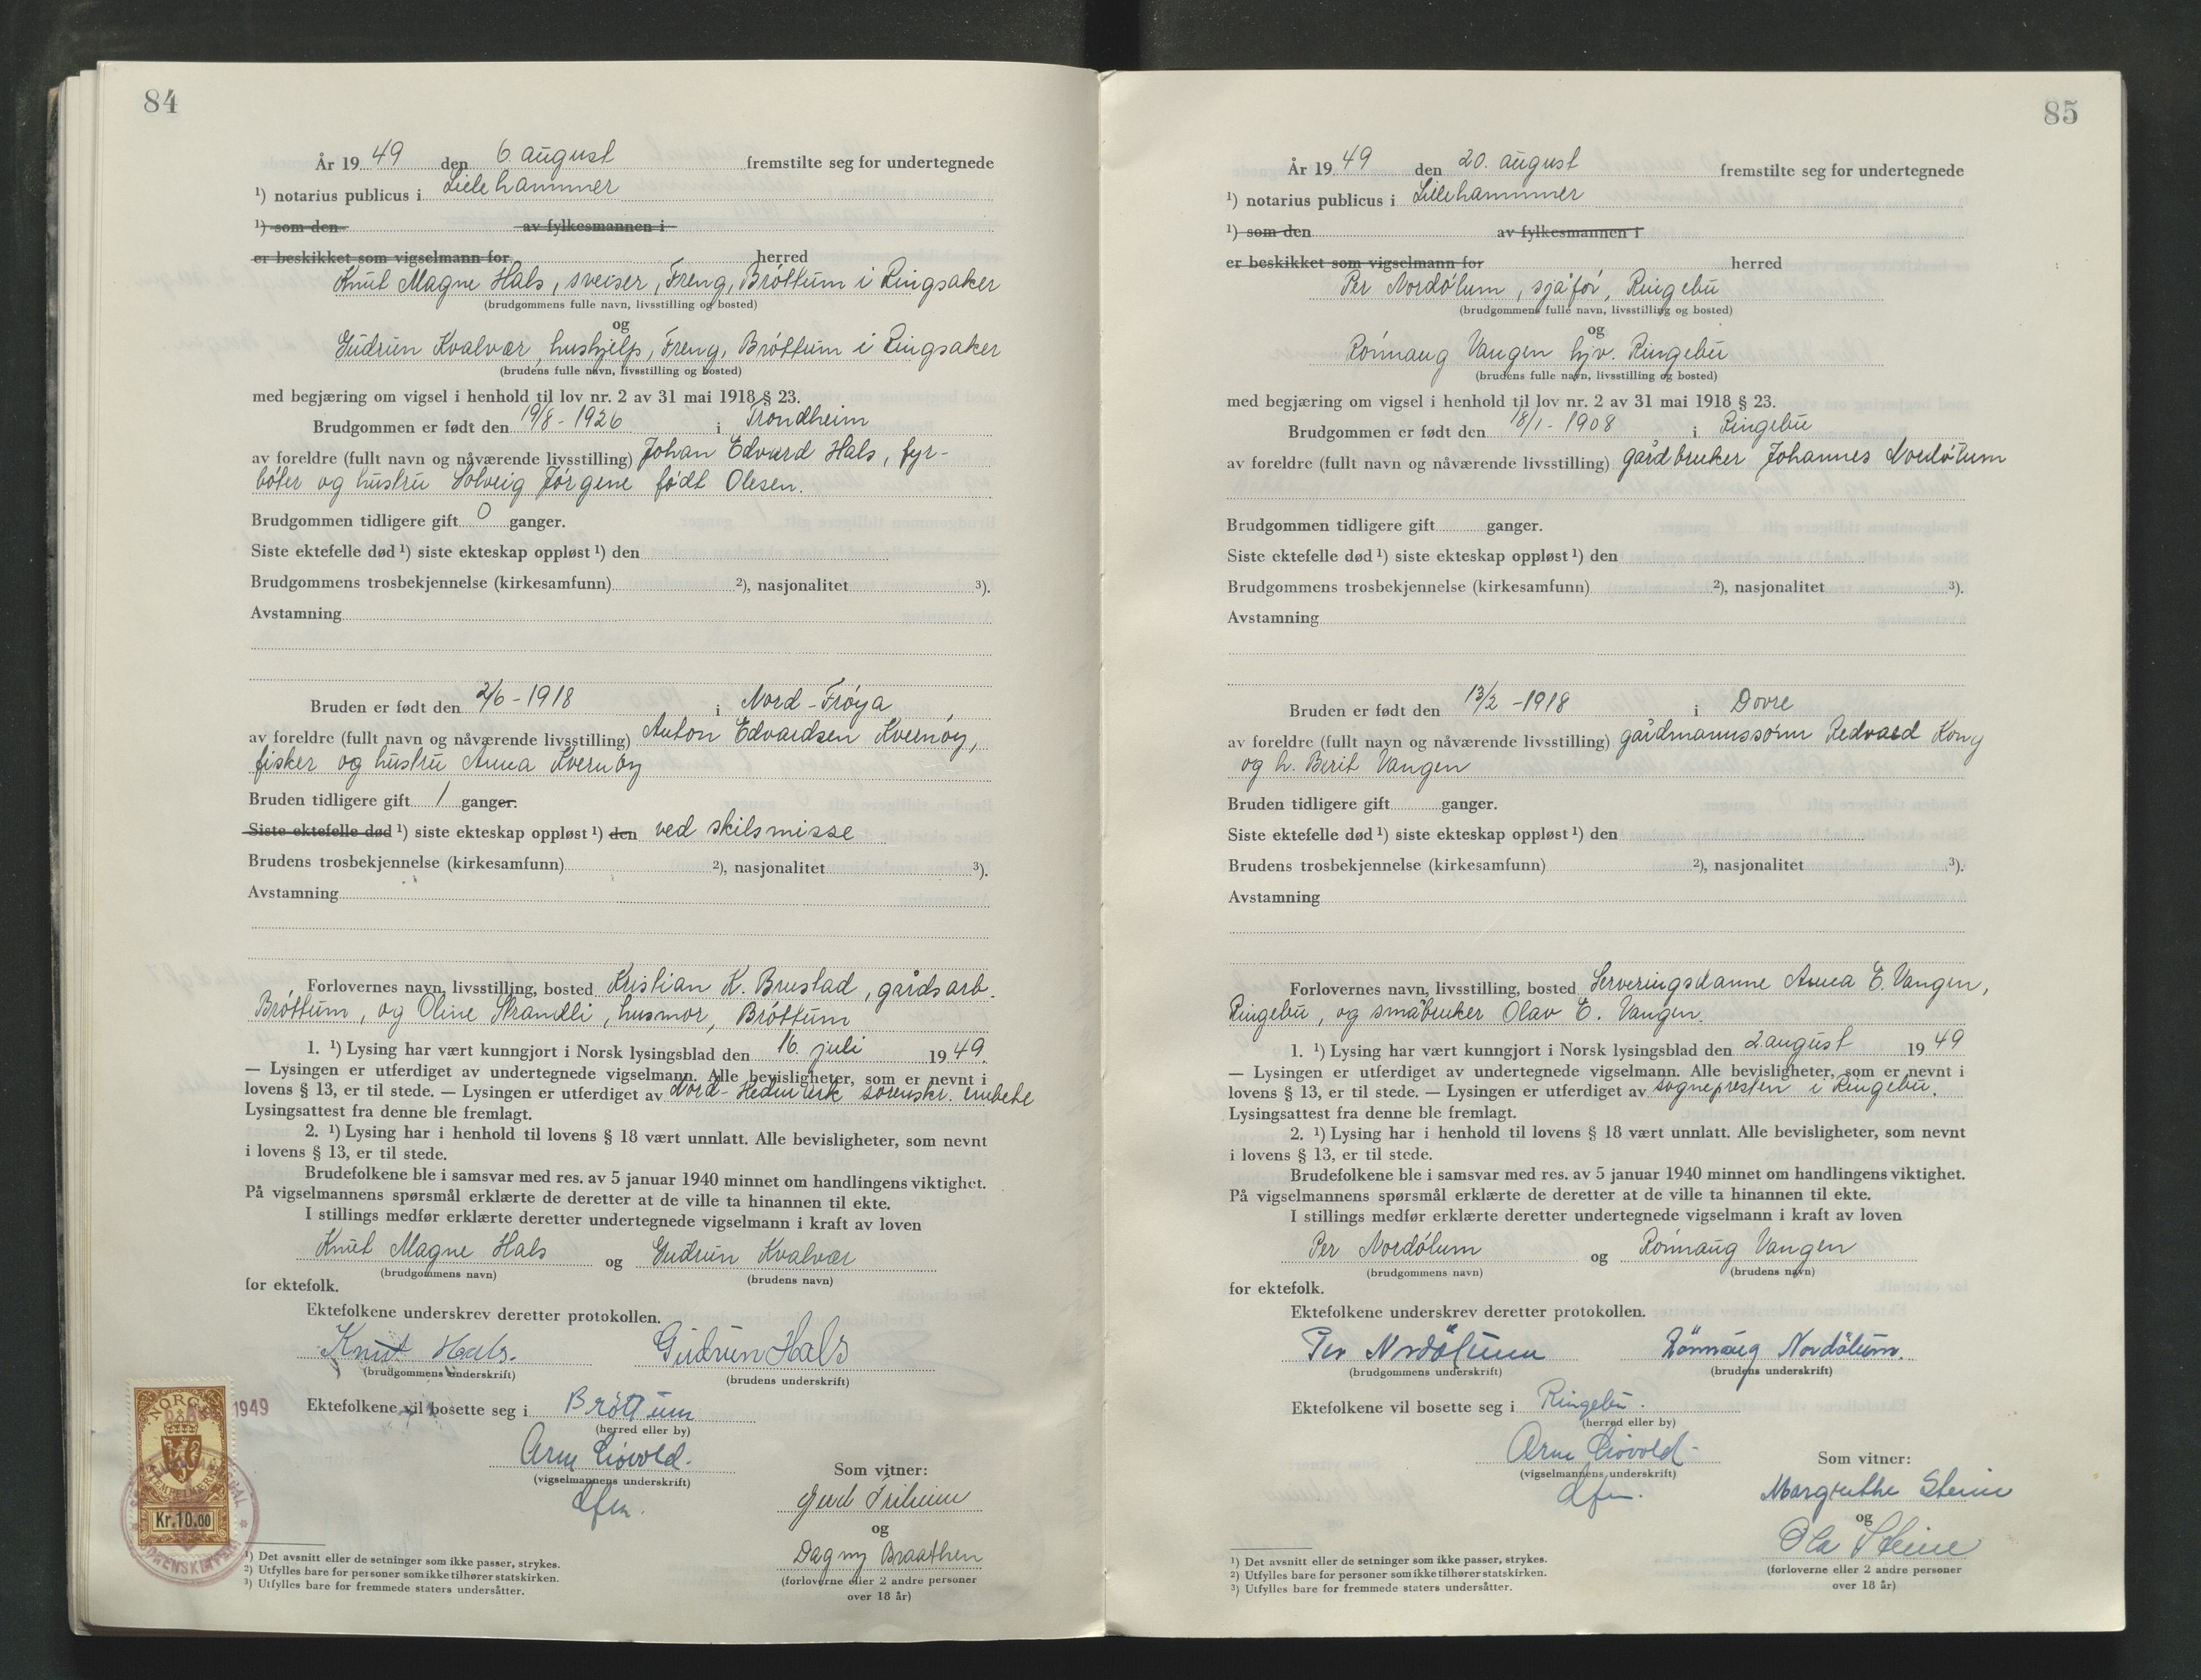 84
År 19 49 den 6. august fremstilte seg for undertegnede
¹) notarius publicus i Lillehammer
¹) som den av fylkesmannen i
er beskikket som vigselmann for herred
Knut Magne Hals, sveiser, Freng, Brøttum i Ringsaker
(brudgommens fulle navn, livsstilling og bosted)
og
Gudrun Kvalvær, hushjelp, Freng, Brøttum i Ringsaker
(brudens fulle navn, livsstilling og bosted)
med begjæring om vigsel i henhold til lov nr. 2 av 31 mai 1918 § 23.
Brudgommen er født den 19/8 - 1926 i Trondheim
av foreldre (fullt navn og nåværende livsstilling) Johan Edvard Hals, fyr-
bøter og hustru Solveig Jørgene født Olesen.
Brudgommen tidligere gift 0 ganger.
Siste ektefelle død ¹) siste ekteskap oppløst ¹) den
Brudgommens trosbekjennelse (kirkesamfunn) ²), nasjonalitet ³).
Avstamning
Bruden er født den 2/6 - 1918 i Nord-Frøya
av foreldre (fullt navn og nåværende livsstilling) Anton Edvardsen Kvernøy,
fisker og hustru Anna Kvernøy
Bruden tidligere gift 1 ganger.
Siste ektefelle død ¹) siste ekteskap oppløst ¹) den ved skilsmisse
Brudens trosbekjennelse (kirkesamfunn) ²), nasjonalitet ³).
Avstamning
Forlovernes navn, livsstilling, bosted Kristian K. Brustad, gårdsarb.
Brøttum, og Oline Strandli, husmor, Brøttum
1. ¹) Lysing har vært kunngjort i Norsk lysingsblad den 16. juli 19 49.
— Lysingen er utferdiget av undertegnede vigselmann. Alle bevisligheter, som er nevnt i
lovens § 13, er til stede. — Lysingen er utferdiget av Nord-Hedmark sorenskr. embete
Lysingsattest fra denne ble fremlagt.
2. ¹) Lysing har i henhold til lovens § 18 vært unnlatt. Alle bevisligheter, som nevnt
i lovens § 13, er til stede.
Brudefolkene ble i samsvar med res. av 5 januar 1940 minnet om handlingens viktighet.
På vigselmannens spørsmål erklærte de deretter at de ville ta hinannen til ekte.
I stillings medfør erklærte deretter undertegnede vigselmann i kraft av loven
Knut Magne Hals og Gudrun Kvalvær
(brudgommens navn) (brudens navn)
for ektefolk.
Ektefolkene underskrev deretter protokollen.
Knut Hals. Gudrun Hals
(brudgommens underskrift) (brudens underskrift)
1949
Ektefolkene vil bosette seg i Brøttum
(herred eller by)
NORGE
Kr. 10.00
(vigselmannens underskrift)
Som vitner:
og
Dagny Braathen
(forloverne eller 2 andre personer
over 18 år)
¹) Det avsnitt eller de setninger som ikke passer, strykes.
²) Utfylles bare for personer som ikke tilhører statskirken.
³) Utfylles bare for fremmede staters undersåtter.
85
År 19 49 den 20. august fremstilte seg for undertegnede
¹) notarius publicus i Lillehammer
¹) som den av fylkesmannen i
er beskikket som vigselmann for herred
Per Nordølum, sjåfør, Ringebu
(brudgommens fulle navn, livsstilling og bosted)
og
Rønnaug Vangen hjv. Ringebu
(brudens fulle navn, livsstilling og bosted)
med begjæring om vigsel i henhold til lov nr. 2 av 31 mai 1918 § 23.
Brudgommen er født den 18/1 - 1908 i Ringebu
av foreldre (fullt navn og nåværende livsstilling) gårdbruker Johannes Nordølum
Brudgommen tidligere gift ganger.
Siste ektefelle død ¹) siste ekteskap oppløst ¹) den
Brudgommens trosbekjennelse (kirkesamfunn) ²), nasjonalitet ³).
Avstamning
Bruden er født den 13/2 - 1918 i Dovre
av foreldre (fullt navn og nåværende livsstilling) gårdmannssønn Redvard Kong
og h. Berit Vangen
Bruden tidligere gift ganger.
Siste ektefelle død ¹) siste ekteskap oppløst ¹) den
Brudens trosbekjennelse (kirkesamfunn) ²), nasjonalitet ³).
Avstamning
Forlovernes navn, livsstilling, bosted Serveringsdame Anna E. Vangen,
Ringebu, og småbruker Olav E. Vangen.
1. ¹) Lysing har vært kunngjort i Norsk lysingsblad den 2 august 19 49
— Lysingen er utferdiget av undertegnede vigselmann. Alle bevisligheter, som er nevnt i
lovens § 13, er til stede. — Lysingen er utferdiget av sognepresten i Ringebu.
Lysingsattest fra denne ble fremlagt.
2. ¹) Lysing har i henhold til lovens § 18 vært unnlatt. Alle bevisligheter, som nevnt
i lovens § 13, er til stede.
Brudefolkene ble i samsvar med res. av 5 januar 1940 minnet om handlingens viktighet.
På vigselmannens spørsmål erklærte de deretter at de ville ta hinannen til ekte.
I stillings medfør erklærte deretter undertegnede vigselmann i kraft av loven
Per Nordølum og Rønnaug Vangen
(brudgommens navn) (brudens navn)
for ektefolk.
Ektefolkene underskrev deretter protokollen.
Per Nordölum Rönnaug Nordölum.
(brudgommens underskrift) (brudens underskrift)
Ektefolkene vil bosette seg i Ringebu.
(herred eller by)
(vigselmannens underskrift)
Som vitner:
Margrethe Steine
og
Ola Steine
(forloverne eller 2 andre personer
over 18 år)
¹) Det avsnitt eller de setninger som ikke passer, strykes.
²) Utfylles bare for personer som ikke tilhører statskirken.
³) Utfylles bare for fremmede staters undersåtter.